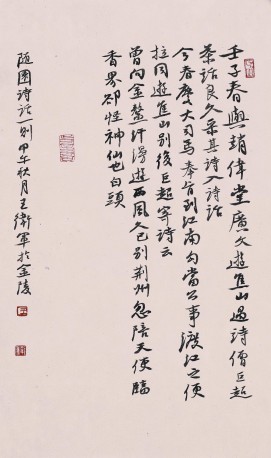 壬子春與趙偉堂廣文遊焦山遇詩僧巨超
茶話良久采其詩入詩話
今春慶大司馬奉旨到江南勾當公事渡江之便
拉同遊焦山別後巨超寄詩云
曾向金鰲汗漫遊西風久已別荆州忽陪天使臨
香界卻怪神仙也白頭
隨園詩話一則甲午秋月王衛軍於金陵